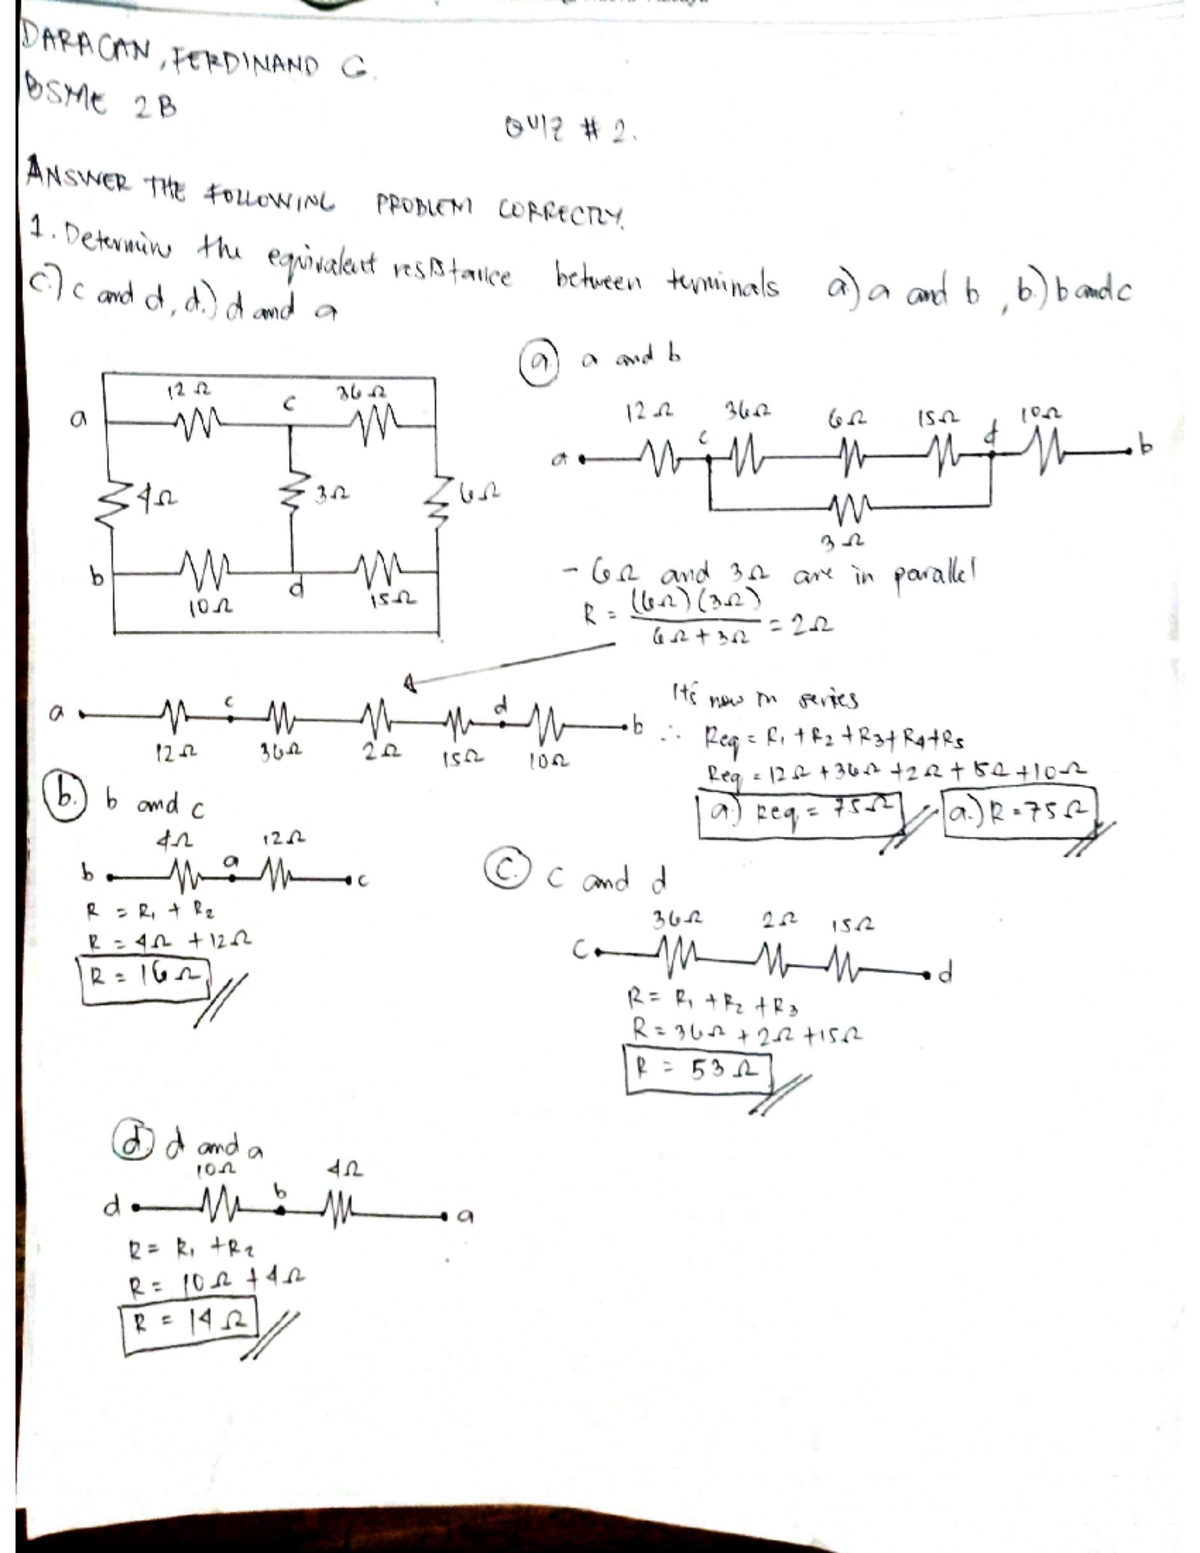 DARACAN, FERDINAND G.
BSME 2B
QUIZ # 2.
ANSWER THE FOLLOWING PROBLEM CORRECTLY.
1. Determine the equivalent resistance between terminals a) a and b, b.) b and c
c.) c and d, d.) d and a
a
12Ω
c
36Ω
4Ω
3Ω
6Ω
b
10Ω
d
15Ω
a a and b
12Ω 36Ω 6Ω 15Ω 10Ω
a c d b
3Ω
- 6Ω and 3Ω are in parallel
R = (6Ω)(3Ω)
6Ω + 3Ω
= 2Ω
a c d b
12Ω 36Ω 2Ω 15Ω 10Ω
It's now in series
∴ Req = R1 + R2 + R3 + R4 + R5
Req = 12Ω + 36Ω + 2Ω + 15Ω + 10Ω
a.) Req = 75Ω a.) R = 75Ω
b. b and c
4Ω 12Ω
b a c
R = R1 + R2
R = 4Ω + 12Ω
R = 16Ω
C. c and d
36Ω 2Ω 15Ω
c d
R = R1 + R2 + R3
R = 36Ω + 2Ω + 15Ω
R = 53Ω
d. d and a
10Ω 4Ω
d b a
R = R1 + R2
R = 10Ω + 4Ω
R = 14Ω